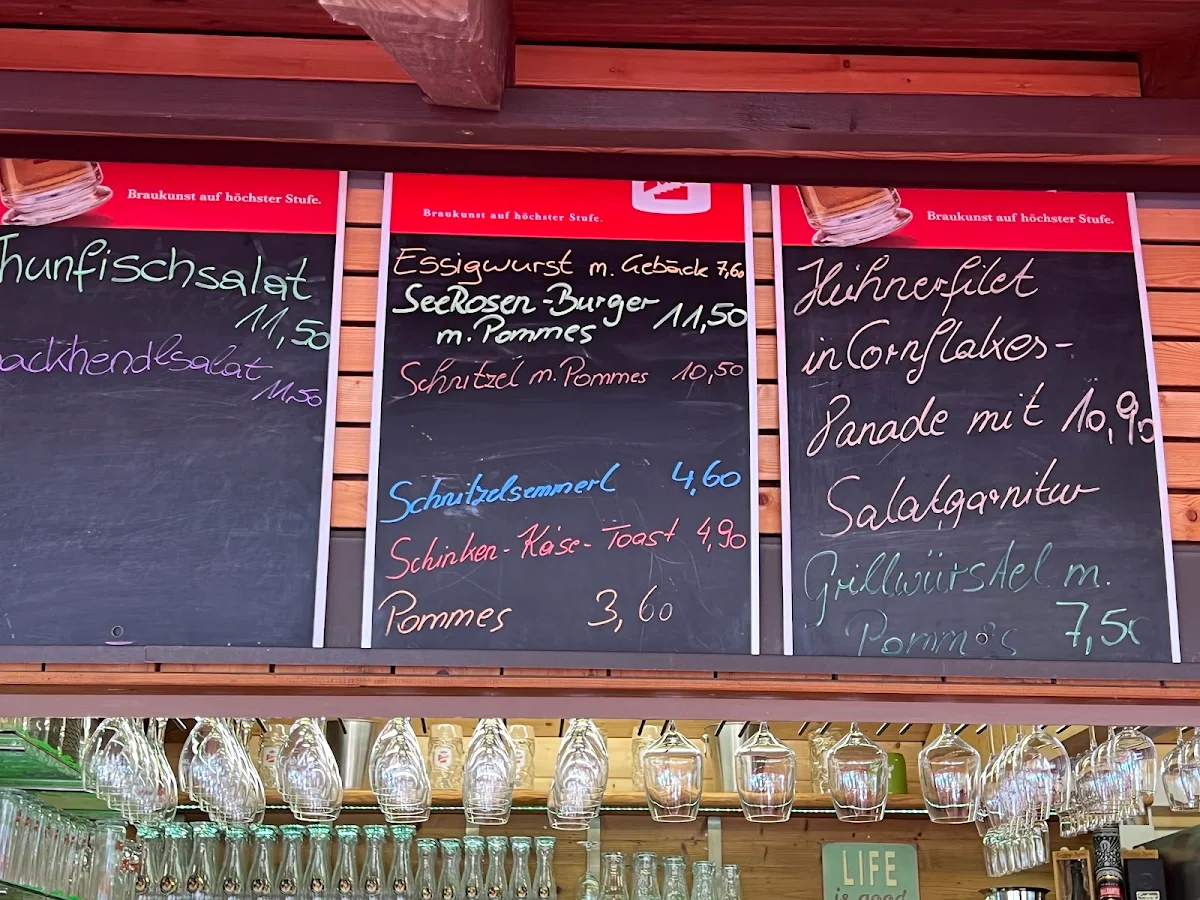 Braukunst auf höchster Stufe.
Thunfischsalat
11,50
ackhendlsalat
11,50
Braukunst auf höchster Stufe.
Essigwurst m. Gebäck 7,60
SeeRosen-Burger 11,50
m. Pommes
Schnitzel m. Pommes 10,50
Schnitzelsemmerl 4,60
Schinken-Käse-Toast 4,90
Pommes 3,60
Braukunst auf höchster Stufe.
Hühnerfilet
in Cornflakes-
Panade mit 10,90
Salatgarnitur
Grillwürstel m.
Pommes 7,50
LIFE
is good